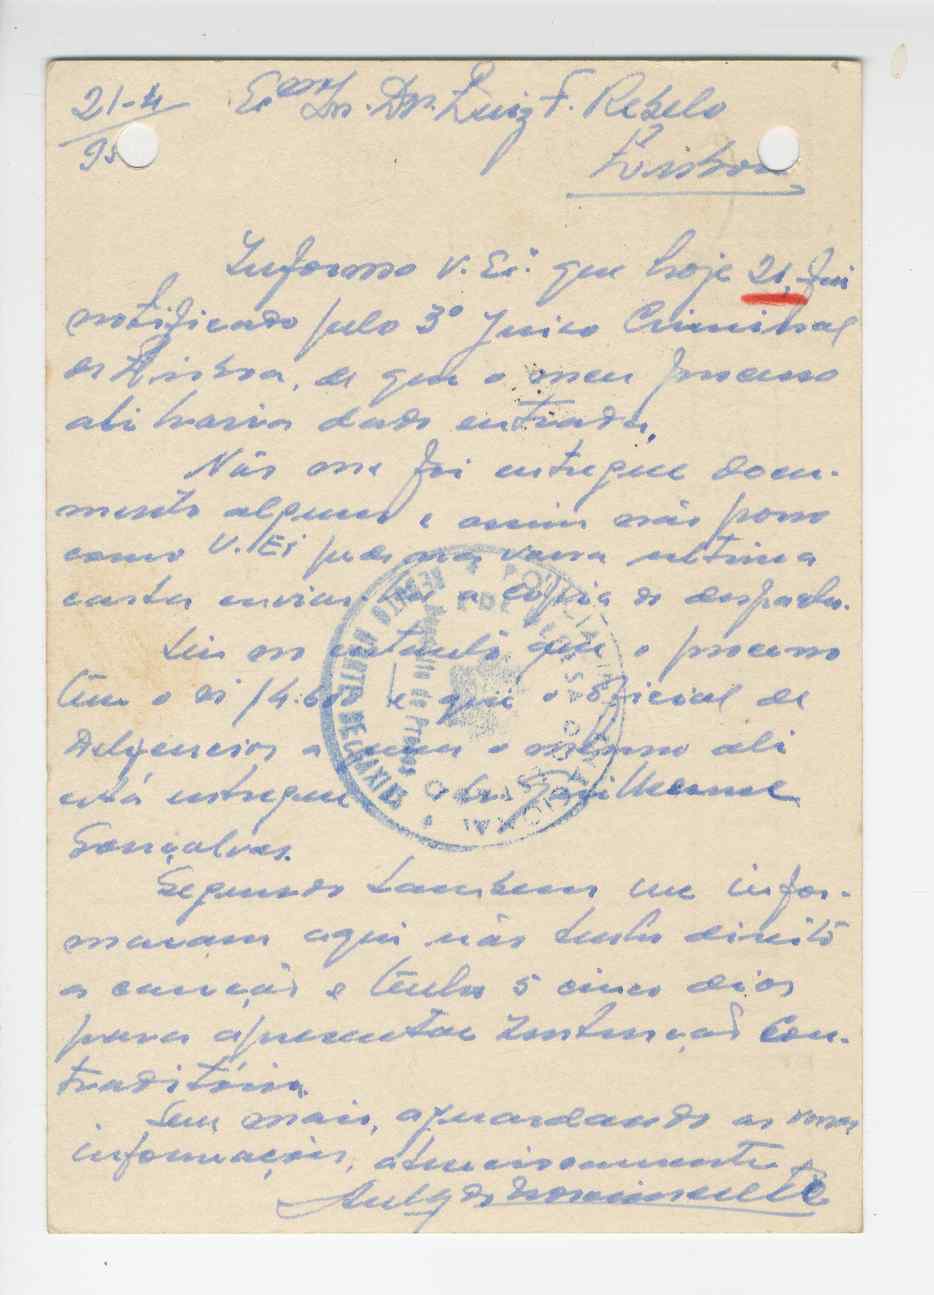 21-4
95
Exmº Sr. Dr. Luiz F. Rebelo
Lisboa
Informo V. Ex.ª que hoje 21, fui
notificado pelo 3º Juizo Criminal
de Lisboa, de que o meu processo
ali havia dado entrada.
Não me foi entregue docu-
mento algum e assim não posso
como V. Ex pede na vossa ultima
carta enviar a cópia do despacho.
Sei no entanto que o processo
tem o nº 14.600 e que o oficial de
Deligencias a quem o mesmo ali
está entregue é o Sr. Guilherme
Gonçalves.
Segundo tambem me infor-
maram aqui não tenho direito
a caução e tenho 5 cinco dias
para apresentar Contestação Con-
traditória.
Sem mais, aguardando as vossas
informações, atenciosamente
POLICIA INTERNACIONAL E DE DEFESA DO ESTADO
Depósito de Presos